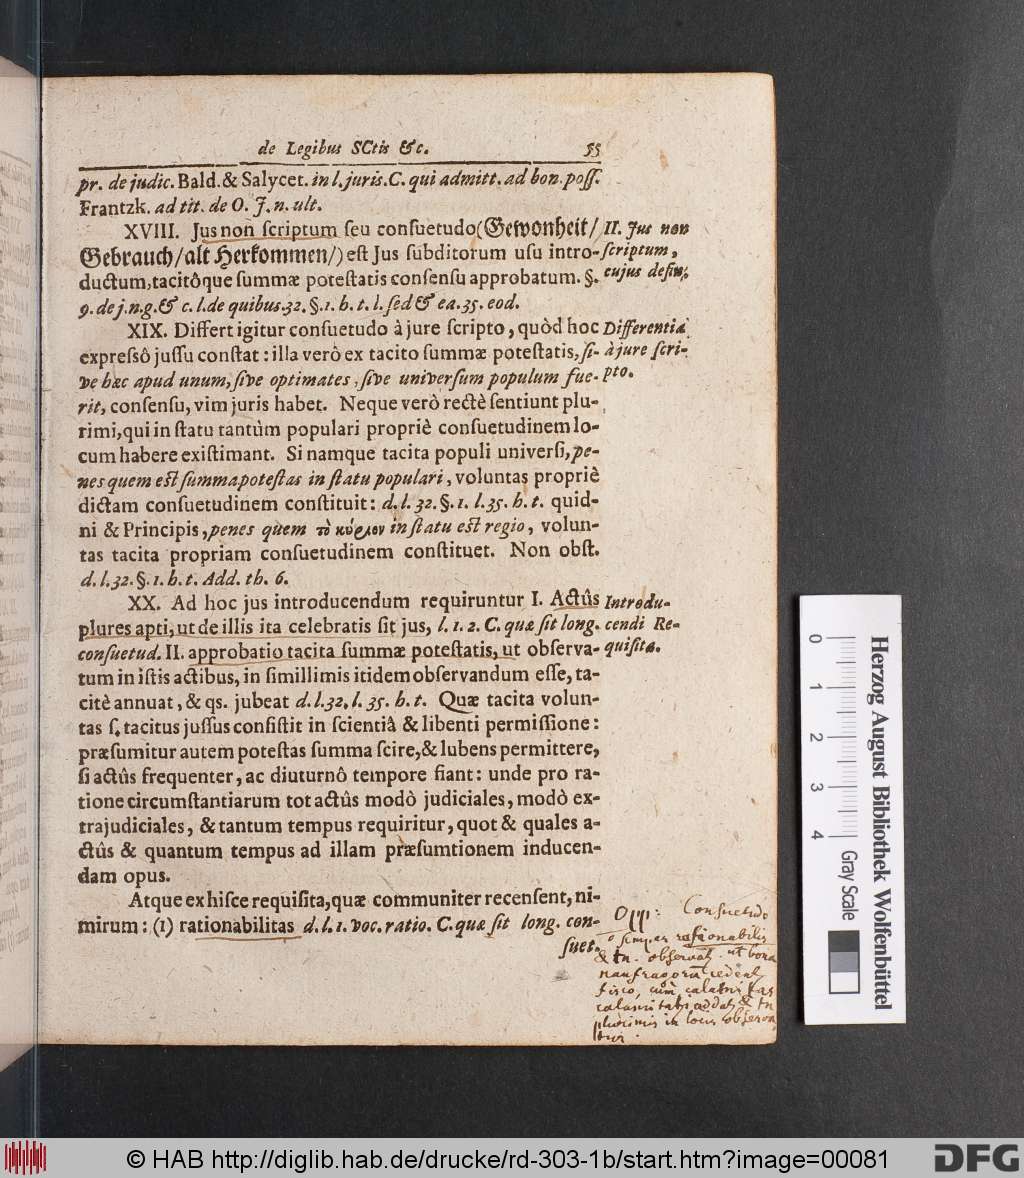 de Legibus SCtis &c. 55
pr. de judic. Bald. & Salycet. in l. juris. C. qui admitt. ad bon. poſſ.
Frantzk. ad tit. de O. J. n. ult.
XVIII. Jus non ſcriptum ſeu conſuetudo (Gewonheit/
Gebrauch/alt Herkommen/) eſt Jus ſubditorum uſu intro-
ductum, tacitôque ſummæ poteſtatis conſenſu approbatum. §.
9. de j. n. g. & c. l. de quibus. 32. §. 1. h. t. l. ſed & ea. 35. eod.
II. Jus non
ſcriptum,
cujus defin;
XIX. Differt igitur conſuetudo à jure ſcripto, quòd hoc
expreſsô juſſu conſtat: illa verô ex tacito ſummæ poteſtatis, ſi-
ve hæc apud unum, ſive optimates, ſive univerſum populum fue-
rit, conſenſu, vim juris habet. Neque verò rectè ſentiunt plu-
rimi, qui in ſtatu tantùm populari propriè conſuetudinem lo-
cum habere exiſtimant. Si namque tacita populi univerſi, pe-
nes quem eſt ſumma poteſtas in ſtatu populari, voluntas propriè
dictam conſuetudinem conſtituit: d. l. 32. §. 1. l. 35. h. t. quid-
ni & Principis, penes quem τὸ κύριον in ſtatu eſt regio, volun-
tas tacita propriam conſuetudinem conſtituet. Non obſt.
d. l. 32. §. 1. h. t. Add. th. 6.
Differentia
à jure ſcri-
pto.
XX. Ad hoc jus introducendum requiruntur I. Actûs
plures apti, ut de illis ita celebratis ſit jus, l. 1. 2. C. quæ ſit long.
conſuetud. II. approbatio tacita ſummæ poteſtatis, ut obſerva-
tum in iſtis actibus, in ſimillimis itidem obſervandum eſſe, ta-
citè annuat, & qs. jubeat d. l. 32. l. 35. h. t. Quæ tacita volun-
tas ſ. tacitus juſſus conſiſtit in ſcientiâ & libenti permiſſione:
præſumitur autem poteſtas ſumma ſcire, & lubens permittere,
ſi actûs frequenter, ac diuturnô tempore fiant: unde pro ra-
tione circumſtantiarum tot actûs modò judiciales, modò ex-
trajudiciales, & tantum tempus requiritur, quot & quales a-
ctûs & quantum tempus ad illam præſumtionem inducen-
dam opus.
Introdu-
cendi Re-
quiſita.
Atque ex hiſce requiſita, quæ communiter recenſent, ni-
mirum: (1) rationabilitas d. l. 1. voc. ratio. C. quæ ſit long. con-
ſuet.
Opp: Conſuetudo
ſemper rationabilis
& tn. obſervatʳ. ut bona
naufragorū cedent
fisco, cùm calamitas
calamitati addatʳ & tn
plurimis in locis obſervan
tur.
0 1 2 3 4
Gray Scale
Herzog August Bibliothek Wolfenbüttel
© HAB http://diglib.hab.de/drucke/rd-303-1b/start.htm?image=00081
DFG